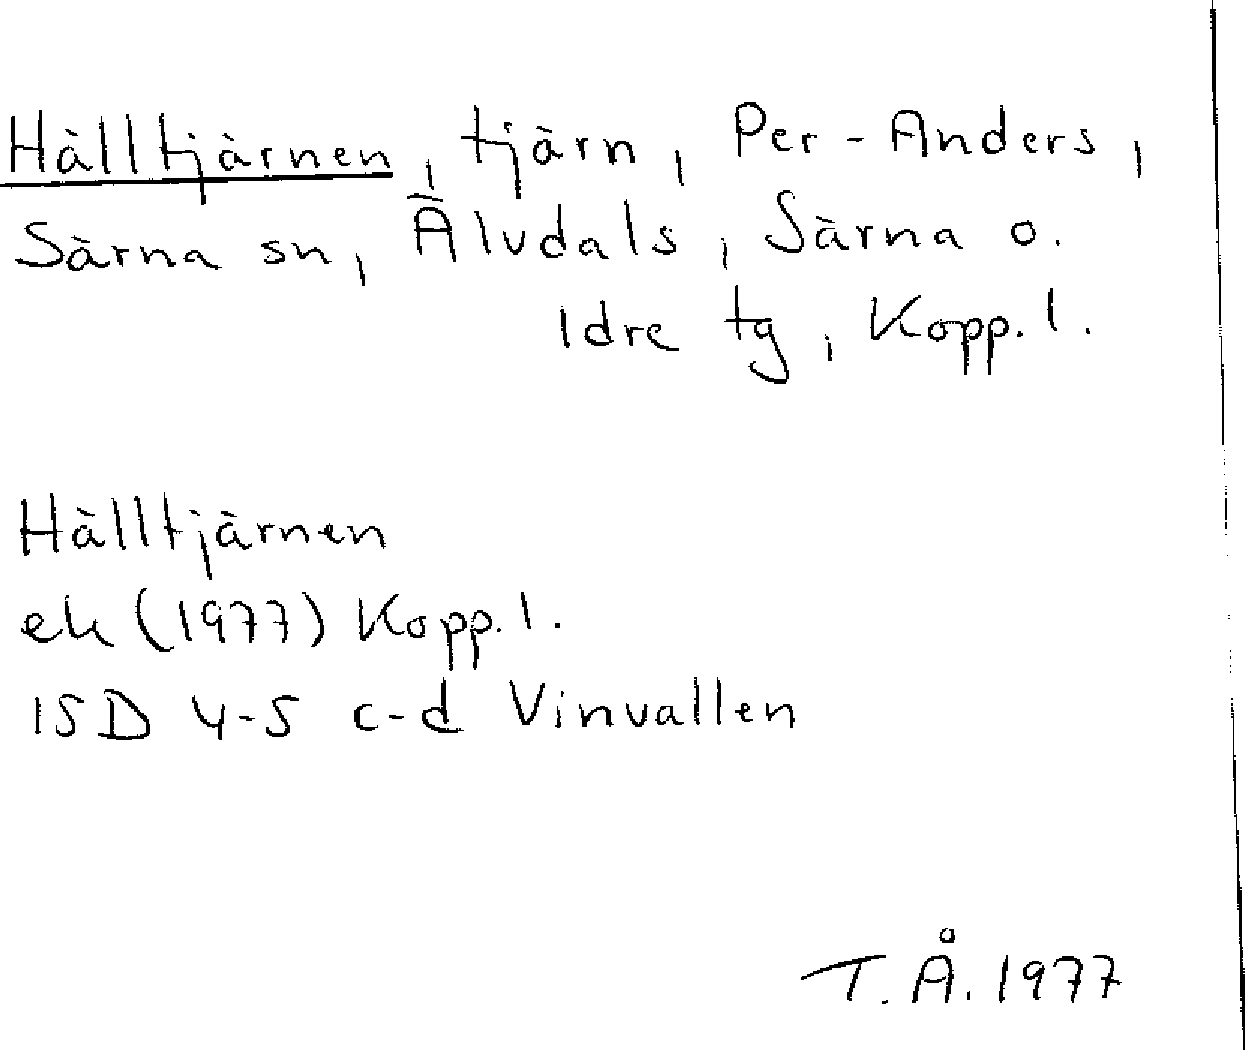 Hälltjärnen, tjärn, Per-Anders,
Särna sn, Älvdals, Särna o.
Idre tg, Kopp. l.
Hälltjärnen
ek (1977) Kopp. l.
15D 4-5 c-d Vinvallen
T.Å. 1977